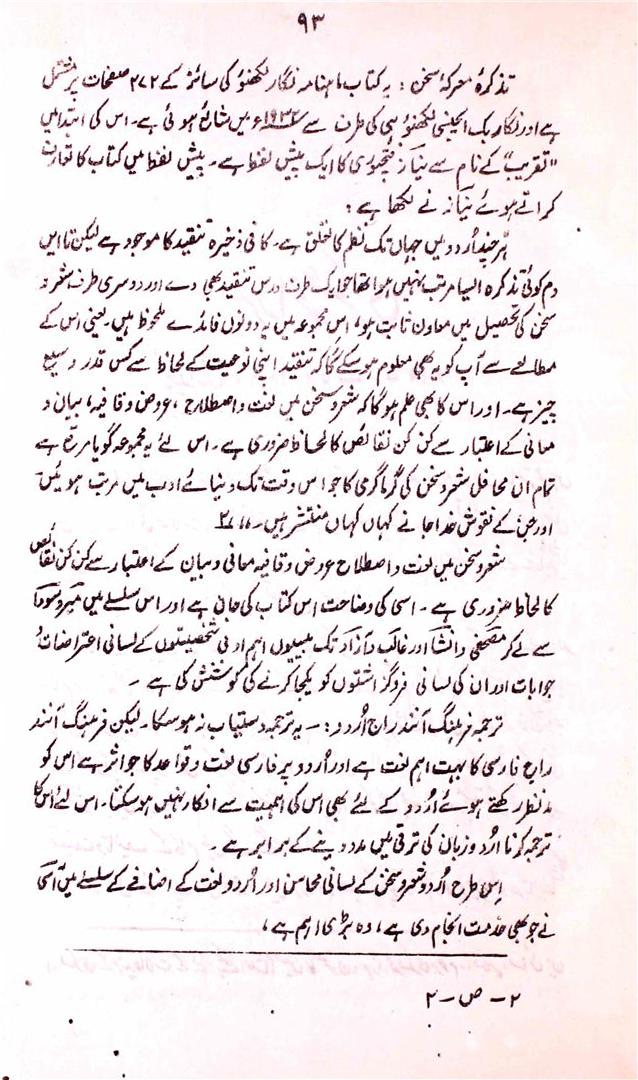 ۹۳
تذکرۂ معرکۂ سخن: یہ کتاب ماہنامہ نگار لکھنؤ کی سائز کے ۲۷۲ صفحات پر مشتمل
ہے اور نگار بک ایجنسی لکھنؤ ہی کی طرف سے ۱۹۳۲ء میں شائع ہوئی ہے۔ اس کی ابتدا میں
"تقریب" کے نام سے نیاز فتحپوری کا ایک پیش لفظ ہے۔ پیش لفظ میں کتاب کا تعارف
کراتے ہوئے نیاز نے لکھا ہے:
ہر چند اُردو میں جہاں تک نظم کا تعلق ہے۔ کافی ذخیرہ تنقید کا موجود ہے لیکن تا ایں
دم کوئی تذکرہ ایسا مرتب نہیں ہوا تھا جو ایک طرف درس تنقید بھی دے اور دوسری طرف شعر و
سخن کی تحصیل میں معاون ثابت ہو، اس مجموعہ میں یہ دونوں فائدے ملحوظ ہیں۔ یعنی اس کے
مطالعے سے آپ کو یہ بھی معلوم ہو سکے گا کہ تنقید اپنی نوعیت کے لحاظ سے کس قدر وسیع
چیز ہے۔ اور اس کا بھی علم ہوگا کہ شعر و سخن میں لغت و اصطلاح، عروض و قافیہ، بیان و
معانی کے اعتبار سے کن کن نقائص کا لحاظ ضروری ہے۔ اس لئے یہ مجموعہ گویا مرقع ہے
تمام ان محافل شعر و سخن کی گرما گرمی کا جو اس وقت تک دنیائے ادب میں مرتب ہوئیں
اور جن کے نقوش خدا جانے کہاں کہاں منتشر ہیں۔،، ۲
شعر و سخن میں لغت و اصطلاح عروض و قافیہ معانی و بیان کے اعتبار سے کن کن نقائص
کا لحاظ ضروری ہے۔ اسی کی وضاحت اس کتاب کی جانی ہے اور اس سلسلے میں میر و سودا
سے لے کر مصحفی و انشا اور غالب و آزاد تک بیسیوں اہم ادبی شخصیتوں کے لسانی اعتراضات و
جوابات اور ان کی لسانی فروگزاشتوں کو یکجا کرنے کی کوشش کی ہے۔
ترجمہ فرہنگ آنند راج اُردو:۔ یہ ترجمہ دستیاب نہ ہو سکا۔ لیکن فرہنگ آنند
راج فارسی کا بہت اہم لغت ہے اور اُردو پر فارسی لغت و قواعد کا جو اثر ہے اس کو
مدنظر رکھتے ہوئے اُردو کے لئے بھی اس کی اہمیت سے انکار نہیں ہو سکتا۔ اس لئے اس کا
ترجمہ کرنا اُردو زبان کی ترقی میں مدد دینے کے برابر ہے۔
اِس طرح اُردو شعر و سخن کے لسانی محاسن اور اُردو لغت کے اضافے کے سلسلے میں آسی
نے جو بھی خدمت انجام دی ہے، وہ بڑی اہم ہے،
۲۔ ص۔ ۲